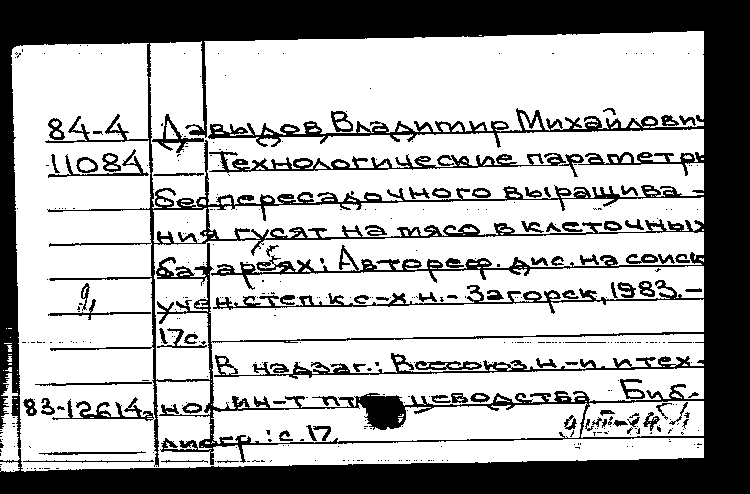 84-4 Давыдов, Владимир Михайлович
11084 Технологические параметры
беспересадочного выращива-
ния гусят на мясо в клеточных
батареях: Автореф. дис. на соиск
учен. степ. к.с.-х.н. - Загорск, 1983. -
17с.
В надзаг.: Всесоюз. н.-и. и тех-
83-12614а нол. ин-т птицеводства. Биб-
лиогр.: с. 17.